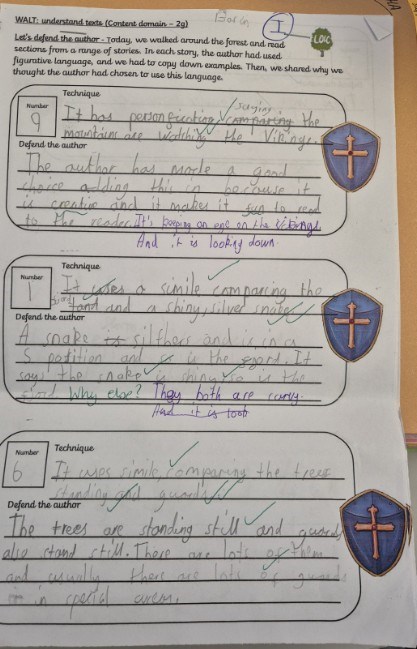 WALT: understand texts (Content domain - 2g)
I
LOtC
Let's defend the author - Today, we walked around the forest and read
sections from a range of stories. In each story, the author had used
figurative language, and we had to copy down examples. Then, we shared why we
thought the author had chosen to use this language.
Technique
Number
9
saying
It has personification, comparing the
mountains are watching the Vikings.
Defend the author
The author has made a good
choice adding this in because it
is creative and it makes it fun to read
to the reader. It's keeping an eye on the vikings
And it is looking down.
Technique
Number
1
It uses a simile comparing the
and a shiny, silver snake
Defend the author
A snake is and is in a
S position and is the It
says the snake is shiny so is the
Why else? They both are curvy.
And it is took
Technique
Number
6
It uses simile, comparing the trees
standing and guards.
Defend the author
The trees are standing still and guards
also stand still. There are lots of them
and usually there are lots of guards
in